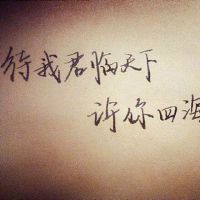 待我君临天下
许你四海